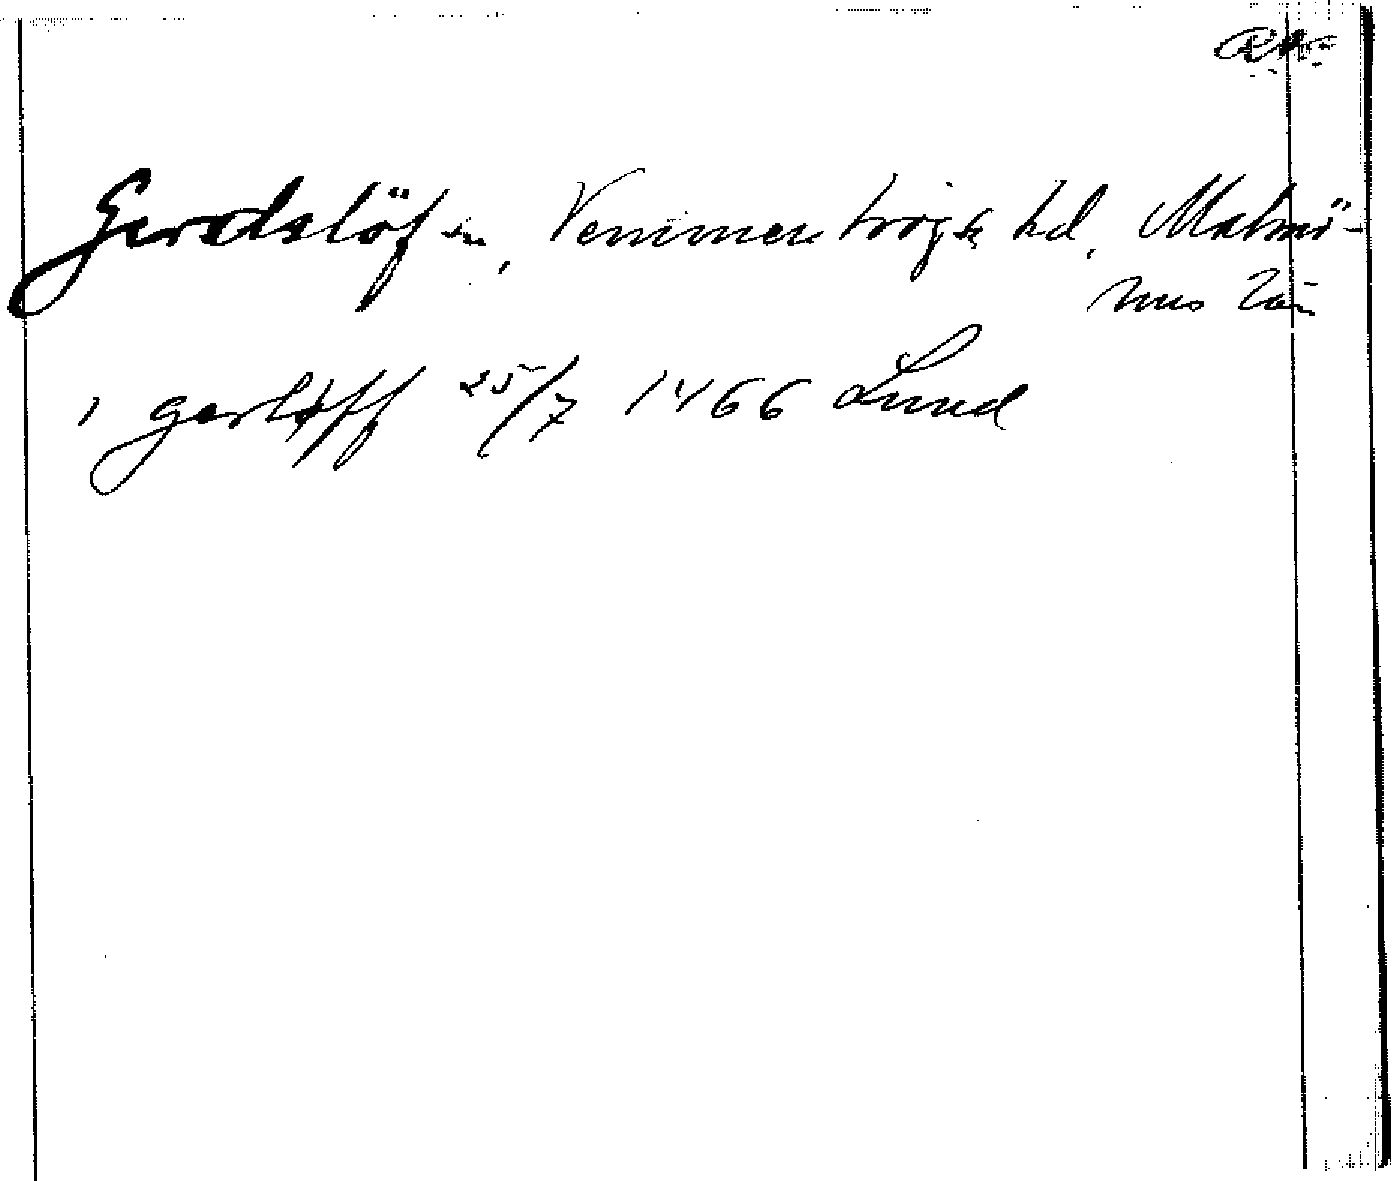 Gerdslöf sn, Vemmenhögs hd, Malmö-
hus län
i gerløff 25/7 1466 Lund